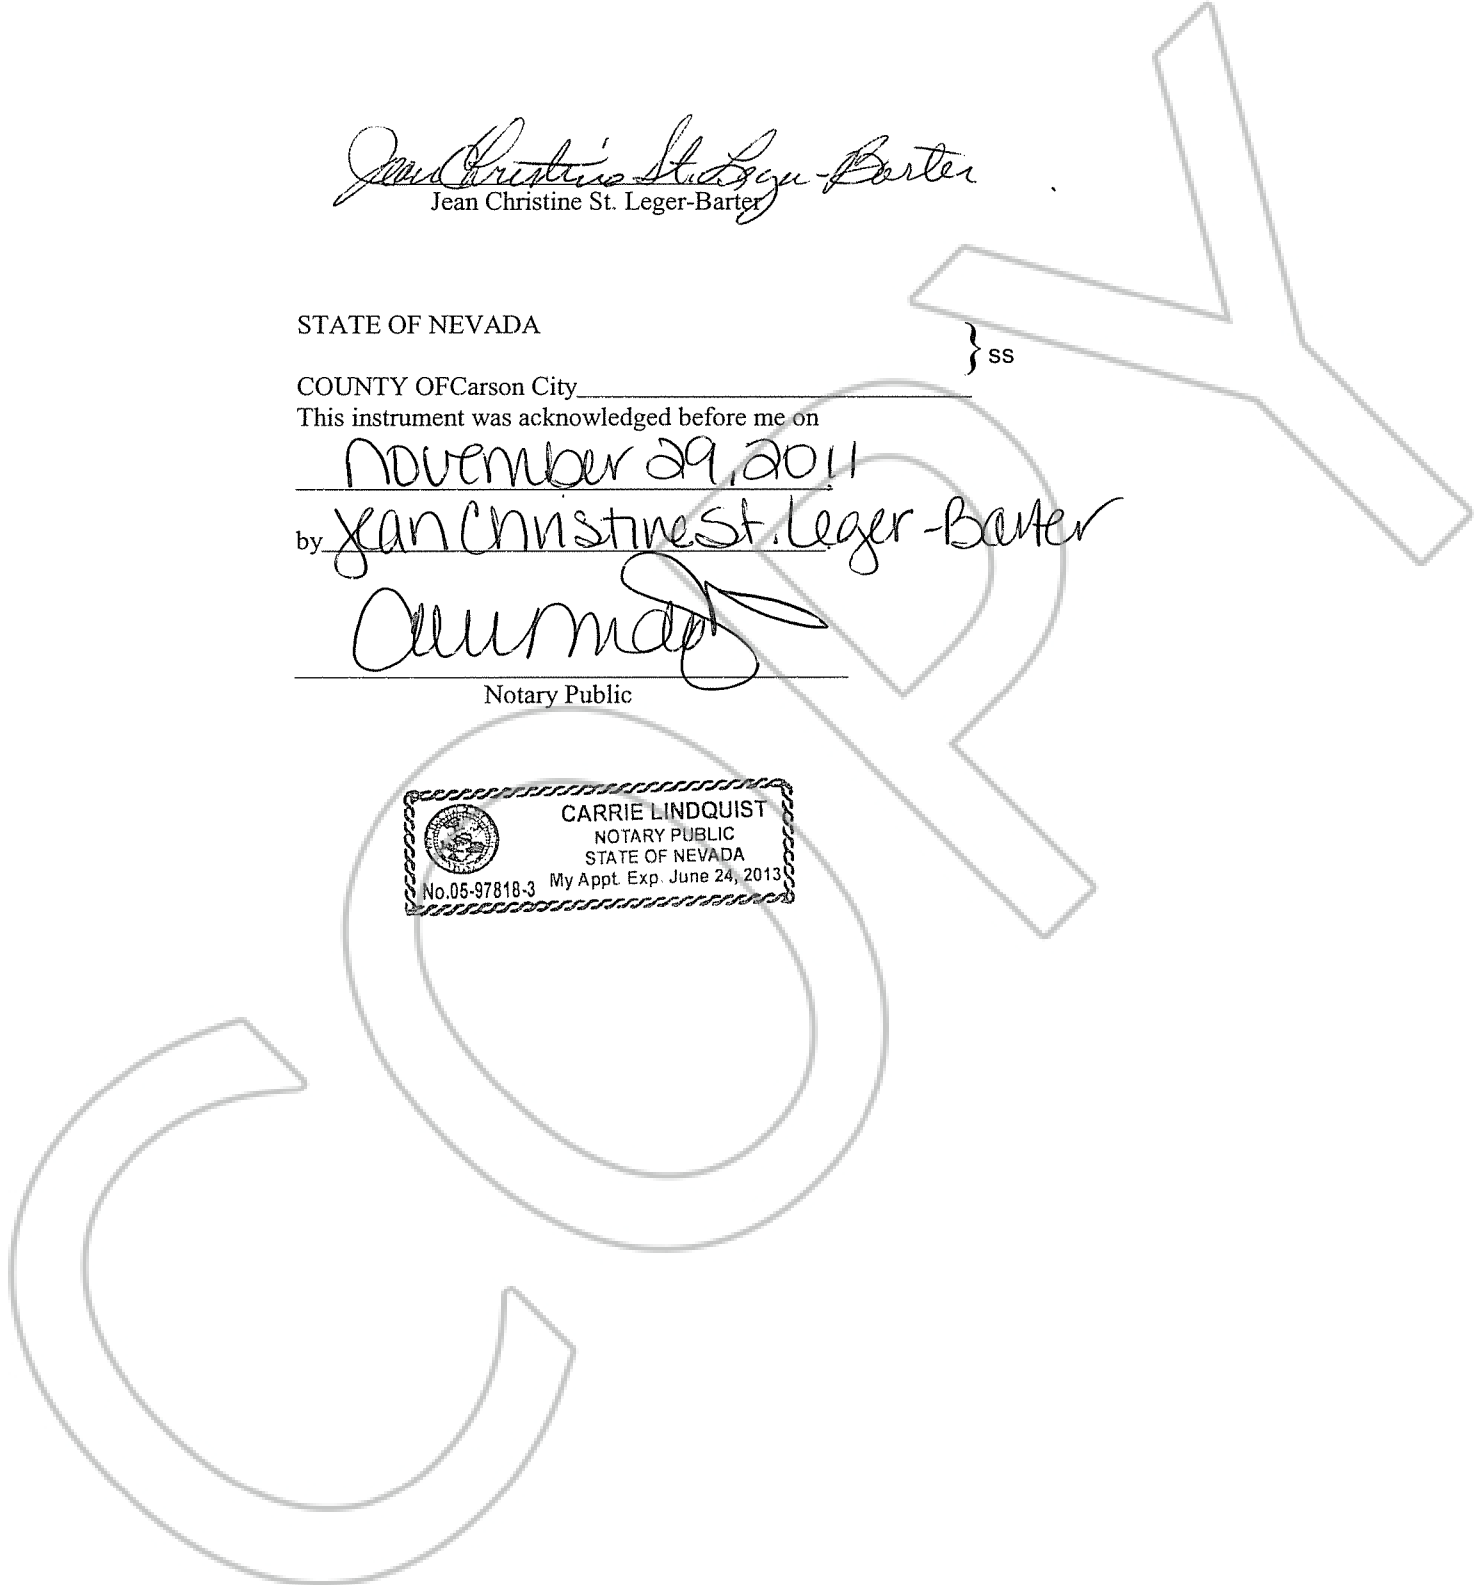 Jean Christine St. Leger-Barter
Jean Christine St. Leger-Barter
STATE OF NEVADA
} ss
COUNTY OFCarson City
This instrument was acknowledged before me on
november 29, 2011
by Jean Christine St. Leger-Barter
Notary Public
CARRIE LINDQUIST
NOTARY PUBLIC
STATE OF NEVADA
No.05-97818-3 My Appt. Exp. June 24, 2013
COPY